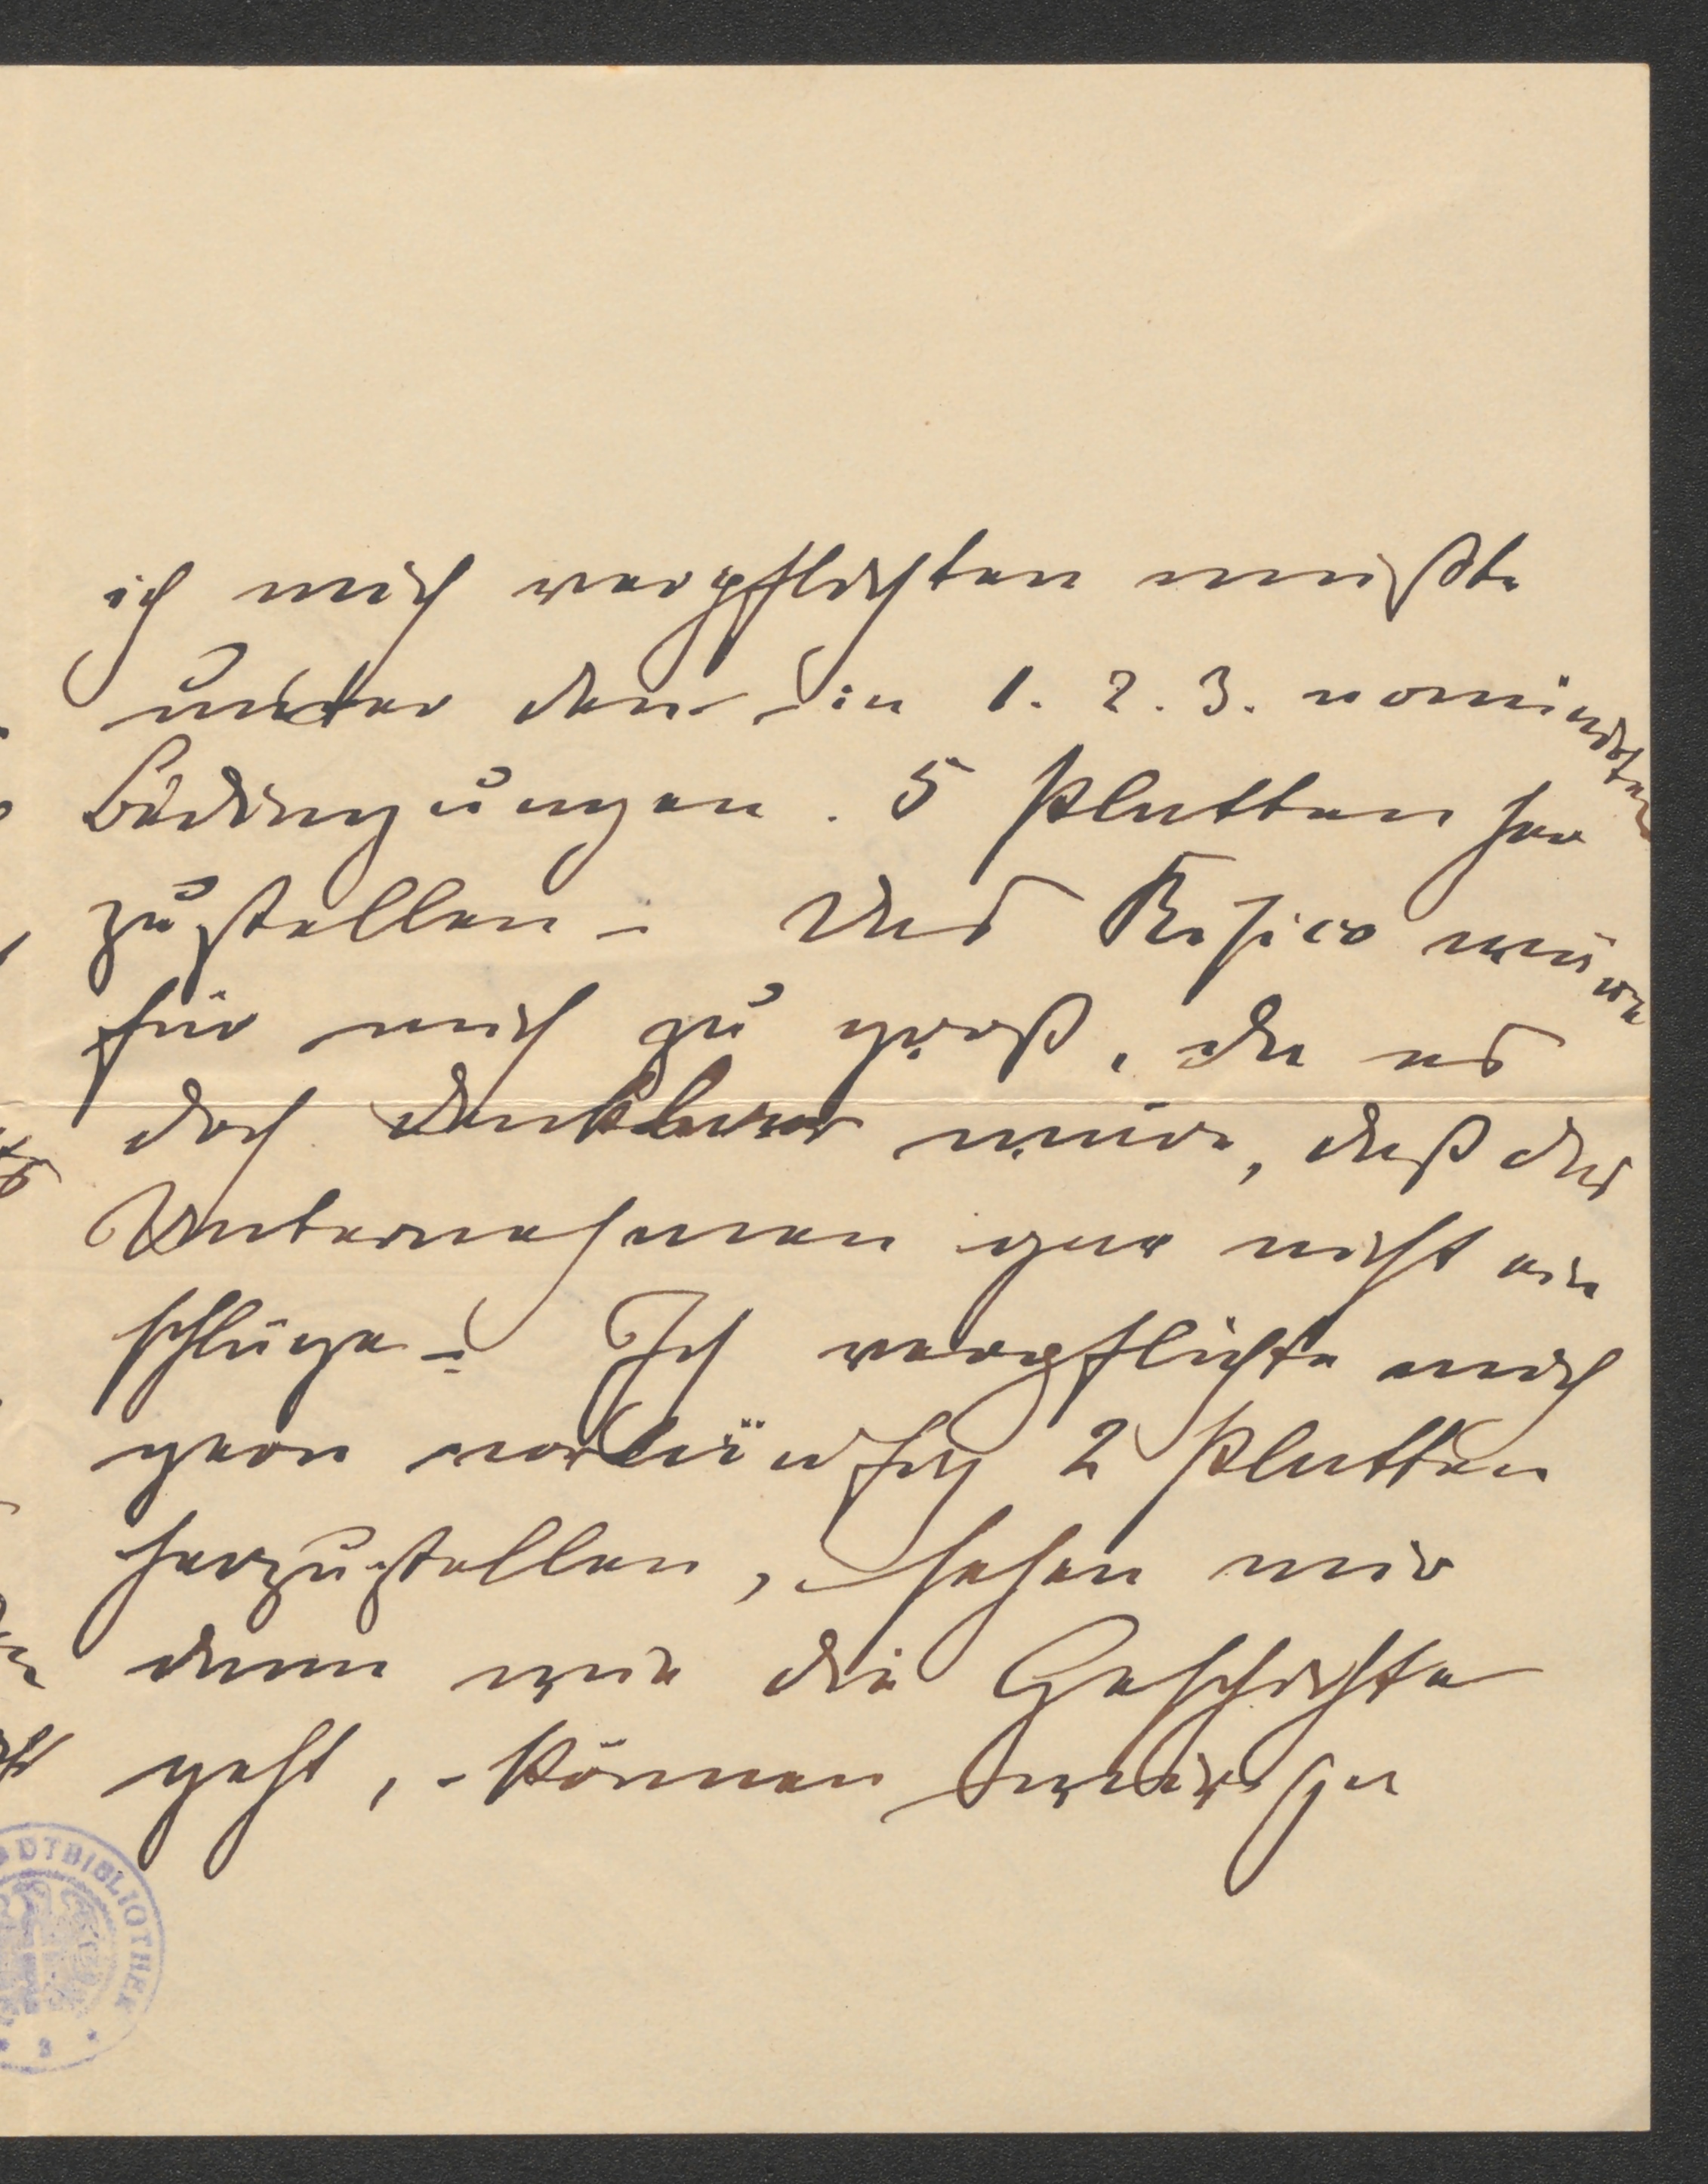 ich mich verpflichten müßte
unter den in 1. 2. 3. normierten
Bedingungen. 5 Platten her
zustellen – Das Risico wäre
für mich zu groß, da es
doch denkbar wäre, daß das
Unternehmen gar nicht ein
schlüge – Ich verpflichte mich
gern vorläufig 2 Platten
herzustellen, sehen wir
dann wie die Geschichte
geht, – können wir ja
DTBIBLIOTHEK
3